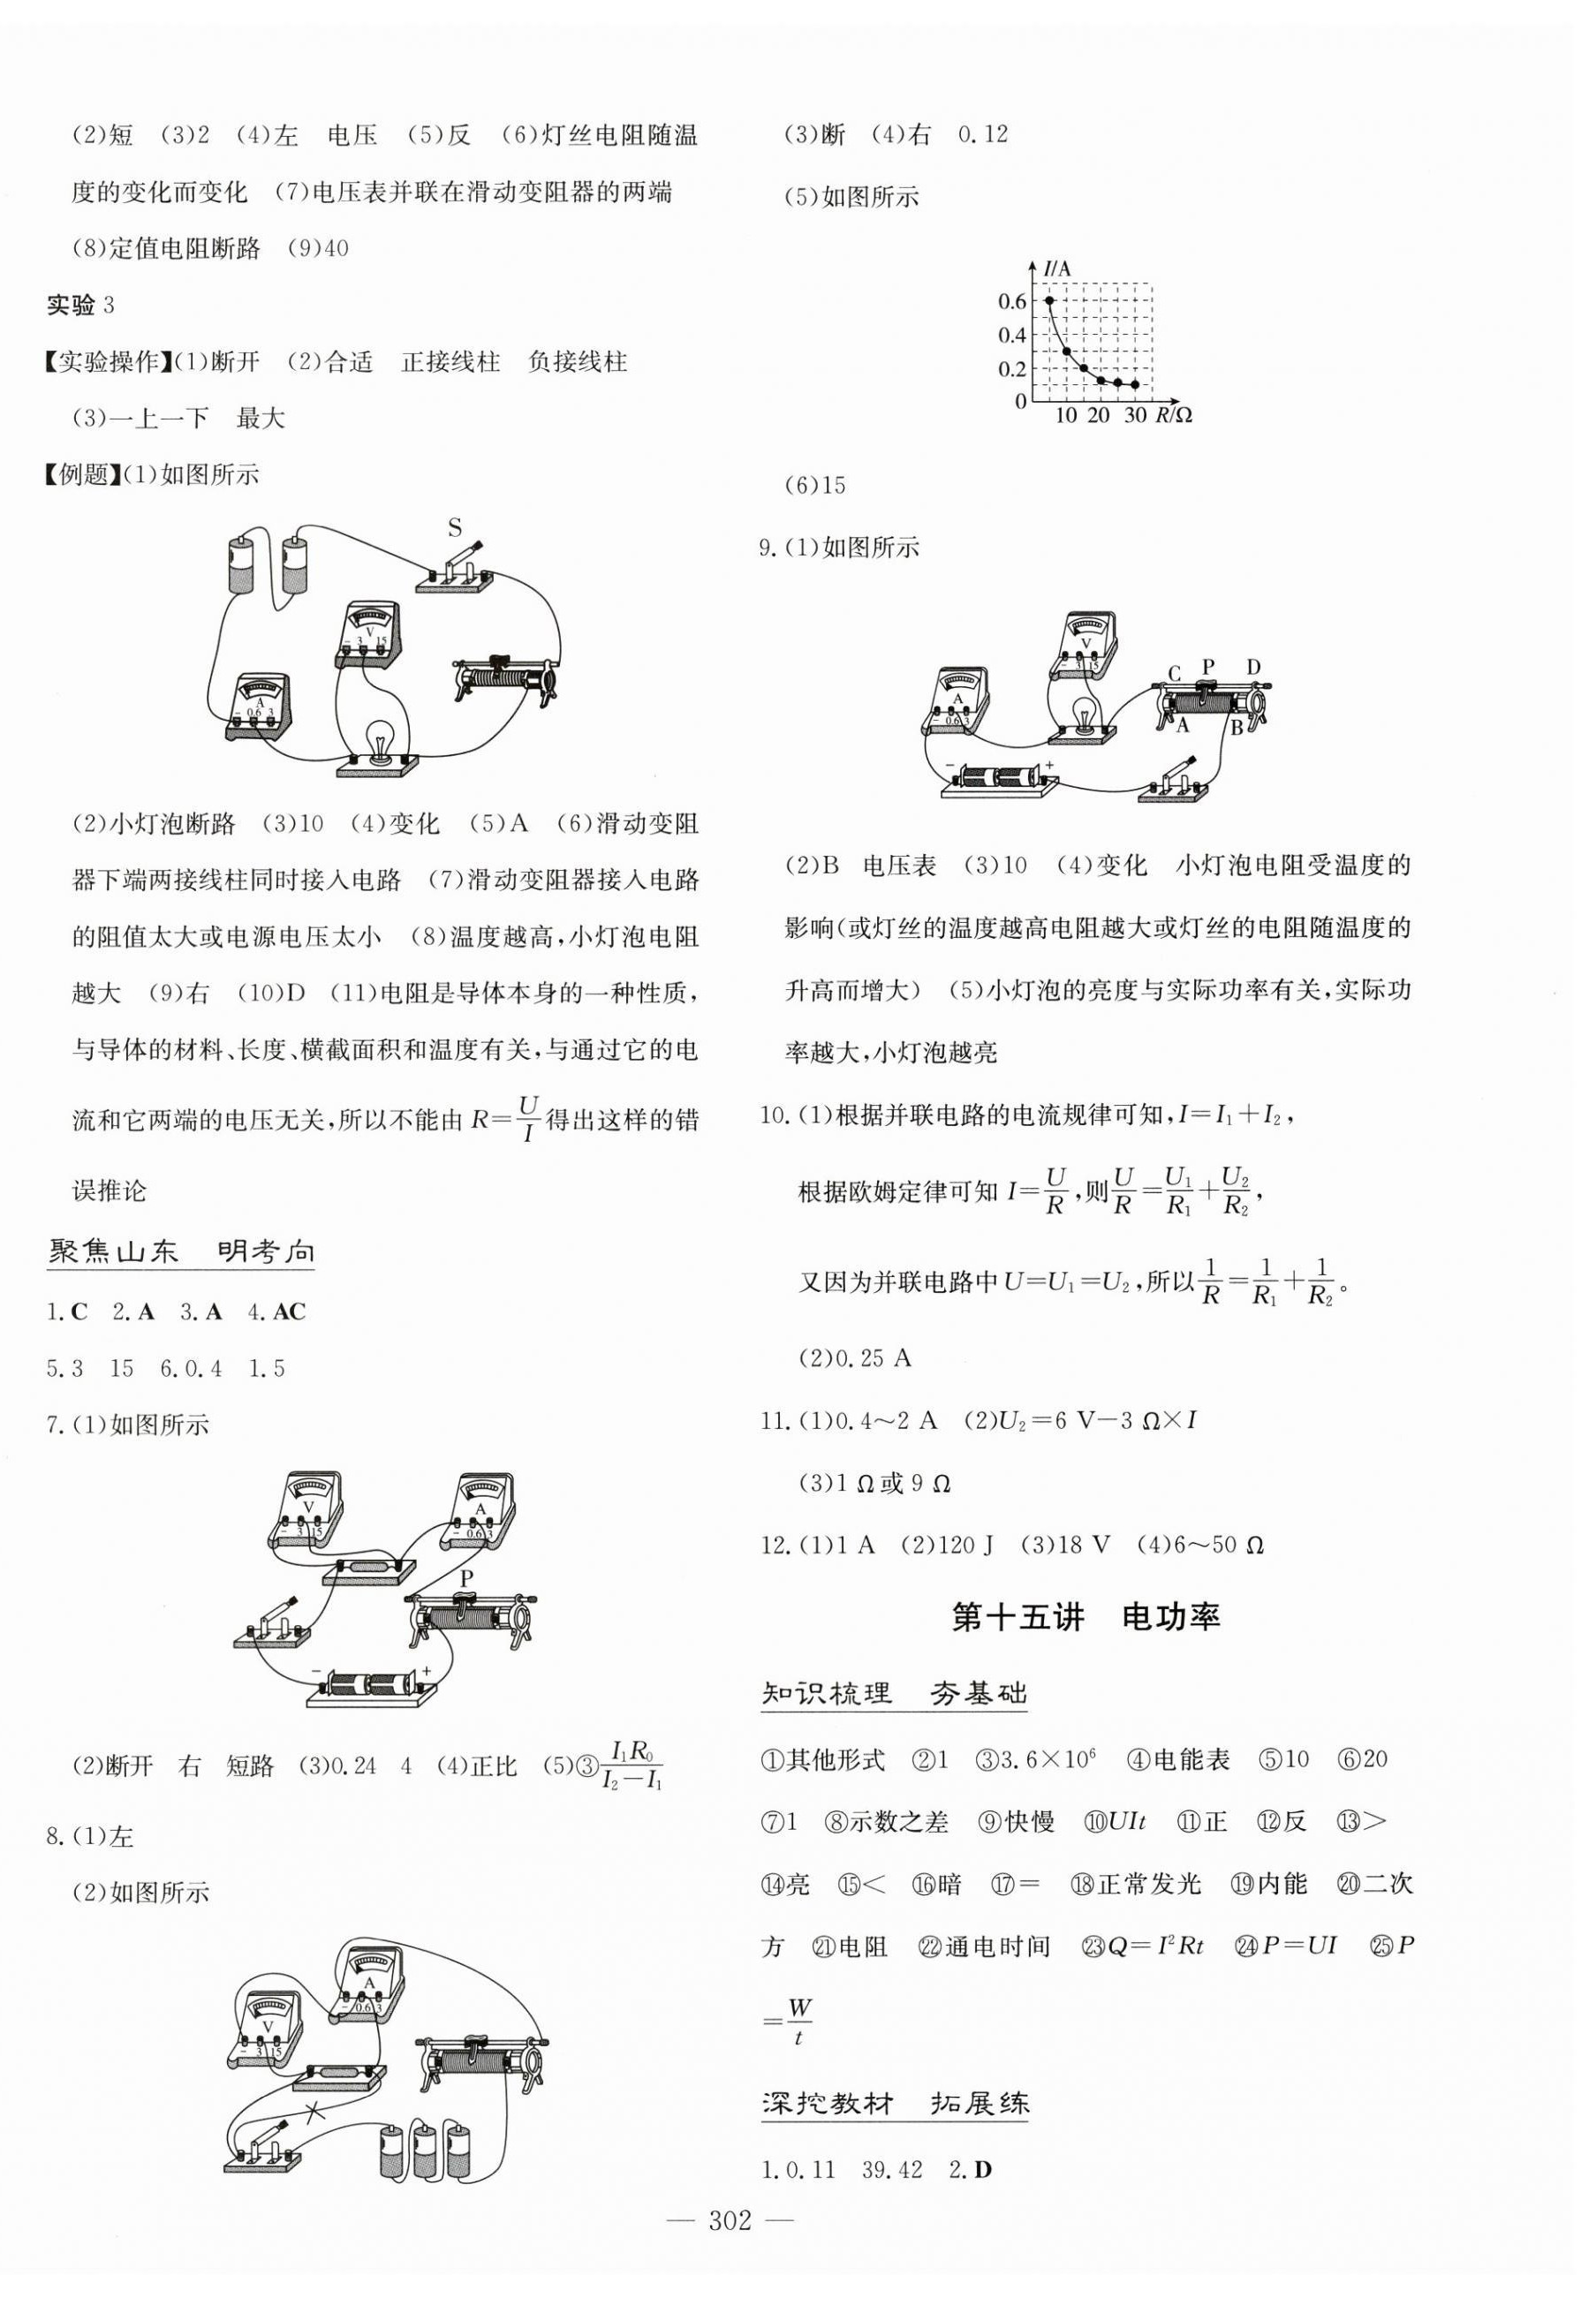 (2)短 (3)2 (4)左 电压 (5)反 (6)灯丝电阻随温
度的变化而变化 (7)电压表并联在滑动变阻器的两端
(8)定值电阻断路 (9)40
实验 3
【实验操作】(1)断开 (2)合适 正接线柱 负接线柱
(3)一上一下 最大
【例题】(1)如图所示
S
V
- 3 15
A
- 0.6 3
(2)小灯泡断路 (3)10 (4)变化 (5)A (6)滑动变阻
器下端两接线柱同时接入电路 (7)滑动变阻器接入电路
的阻值太大或电源电压太小 (8)温度越高,小灯泡电阻
越大 (9)右 (10)D (11)电阻是导体本身的一种性质,
与导体的材料、长度、横截面积和温度有关,与通过它的电
流和它两端的电压无关,所以不能由 R=U/I得出这样的错
误推论
聚焦山东 明考向
1.C 2.A 3.A 4.AC
5.3 15 6.0.4 1.5
7.(1)如图所示
V
- 3 15
A
- 0.6 3
P
- +
(2)断开 右 短路 (3)0.24 4 (4)正比 (5)③I₁R₀/(I₂-I₁)
8.(1)左
(2)如图所示
A
- 0.6 3
V
- 3 15
(3)断 (4)右 0.12
(5)如图所示
I/A
0.6
0.4
0.2
0
10 20 30 R/Ω
(6)15
9.(1)如图所示
V
- 3 15
A
- 0.6 3
C P D
A B
- +
(2)B 电压表 (3)10 (4)变化 小灯泡电阻受温度的
影响(或灯丝的温度越高电阻越大或灯丝的电阻随温度的
升高而增大) (5)小灯泡的亮度与实际功率有关,实际功
率越大,小灯泡越亮
10.(1)根据并联电路的电流规律可知,I=I₁+I₂,
根据欧姆定律可知 I=U/R,则U/R=U₁/R₁+U₂/R₂,
又因为并联电路中 U=U₁=U₂,所以1/R=1/R₁+1/R₂。
(2)0.25 A
11.(1)0.4～2 A (2)U₂=6 V-3 Ω×I
(3)1 Ω或 9 Ω
12.(1)1 A (2)120 J (3)18 V (4)6～50 Ω
第十五讲 电功率
知识梳理 夯基础
①其他形式 ②1 ③3.6×10⁶ ④电能表 ⑤10 ⑥20
⑦1 ⑧示数之差 ⑨快慢 ⑩UIt ⑪正 ⑫反 ⑬>
⑭亮 ⑮< ⑯暗 ⑰= ⑱正常发光 ⑲内能 ⑳二次
方 ㉑电阻 ㉒通电时间 ㉓Q=I²Rt ㉔P=UI ㉕P
=W/t
深挖教材 拓展练
1.0.11 39.42 2.D
— 302 —